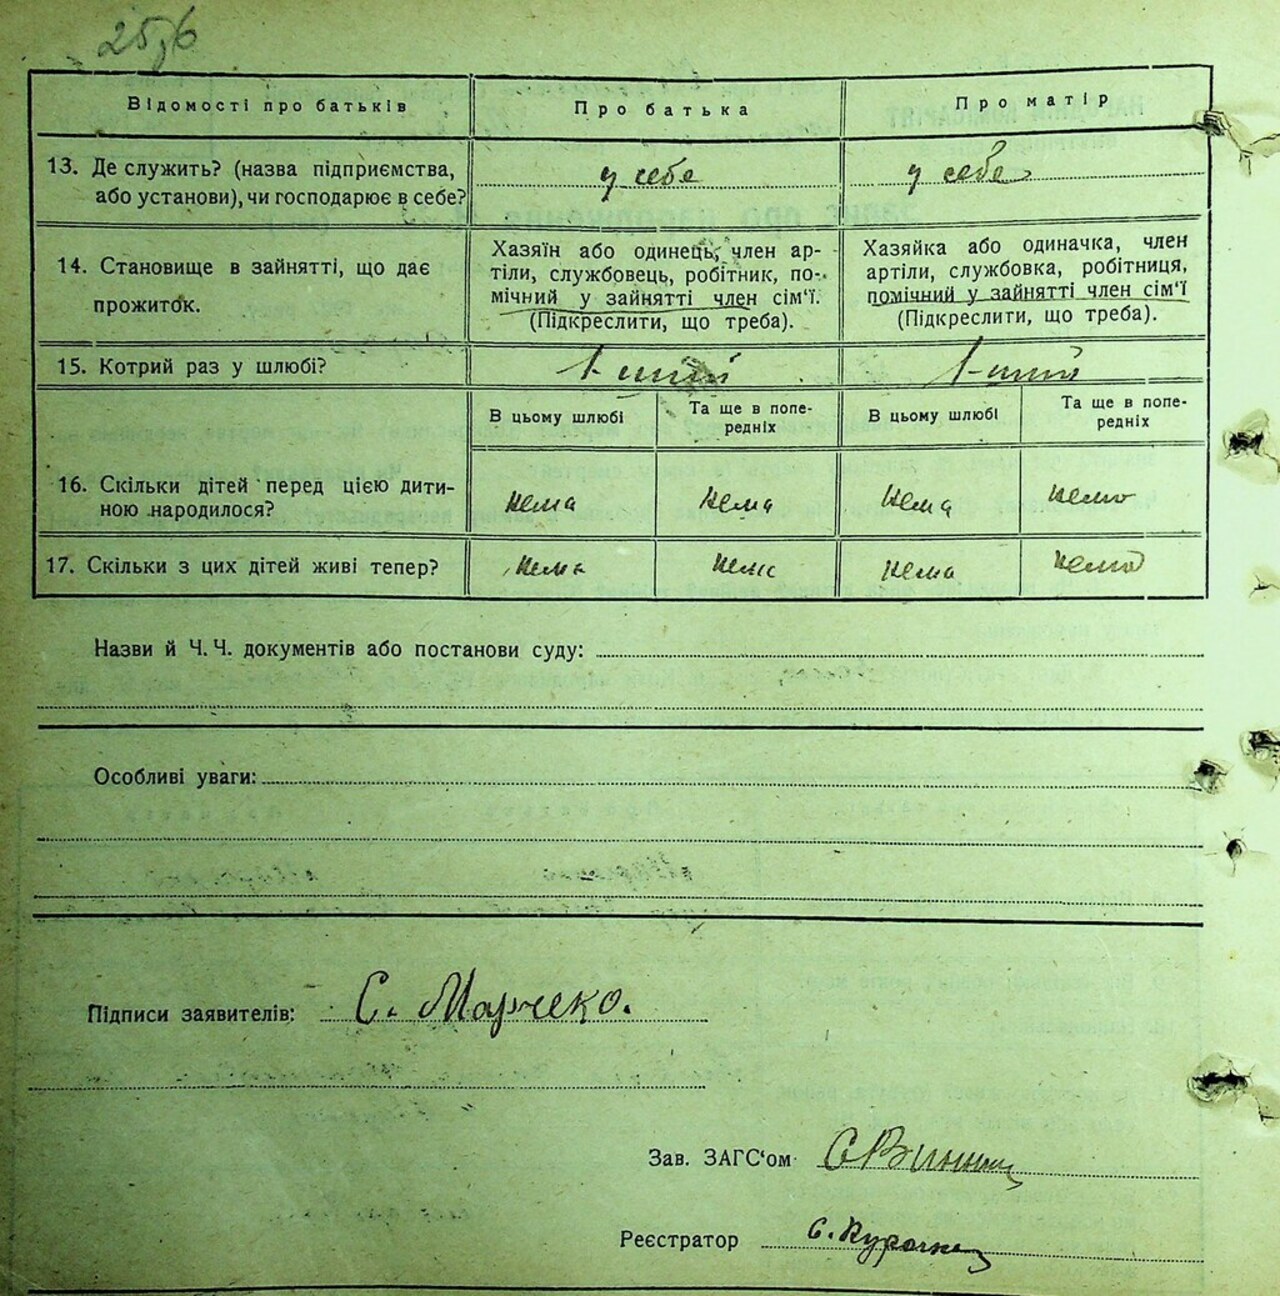 Відомості про батьків
Про батька
Про матір
13. Де служить? (назва підприємства,
або установи), чи господарює в себе?
у себе
у себе
14. Становище в зайнятті, що дає
прожиток.
Хазяїн або одинець, член ар-
тіли, службовець, робітник, по-
мічний у зайнятті член сім‘ї.
(Підкреслити, що треба).
Хазяйка або одиначка, член
артіли, службовка, робітниця,
помічний у зайнятті член сім‘ї
(Підкреслити, що треба).
15. Котрий раз у шлюбі?
1-ший
1-ший
В цьому шлюбі
Та ще в попе-
редніх
В цьому шлюбі
Та ще в попе-
редніх
16. Скільки дітей перед цією дити-
ною народилося?
нема
нема
нема
нема
17. Скільки з цих дітей живі тепер?
нема
нема
нема
нема
Назви й Ч. Ч. документів або постанови суду:
Особливі уваги:
Підписи заявителів: С.
Зав. ЗАГС‘ом
Реєстратор